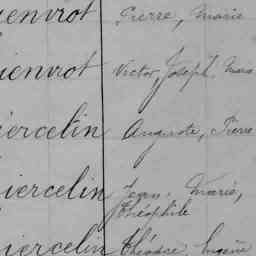 ienvrot Pierre, Marie
ienvrot Victor, Joseph, Marie
iercelin Auguste, Pierre
iercelin Jean, Marie,
Théophile
iercelin Théodore, Eugène